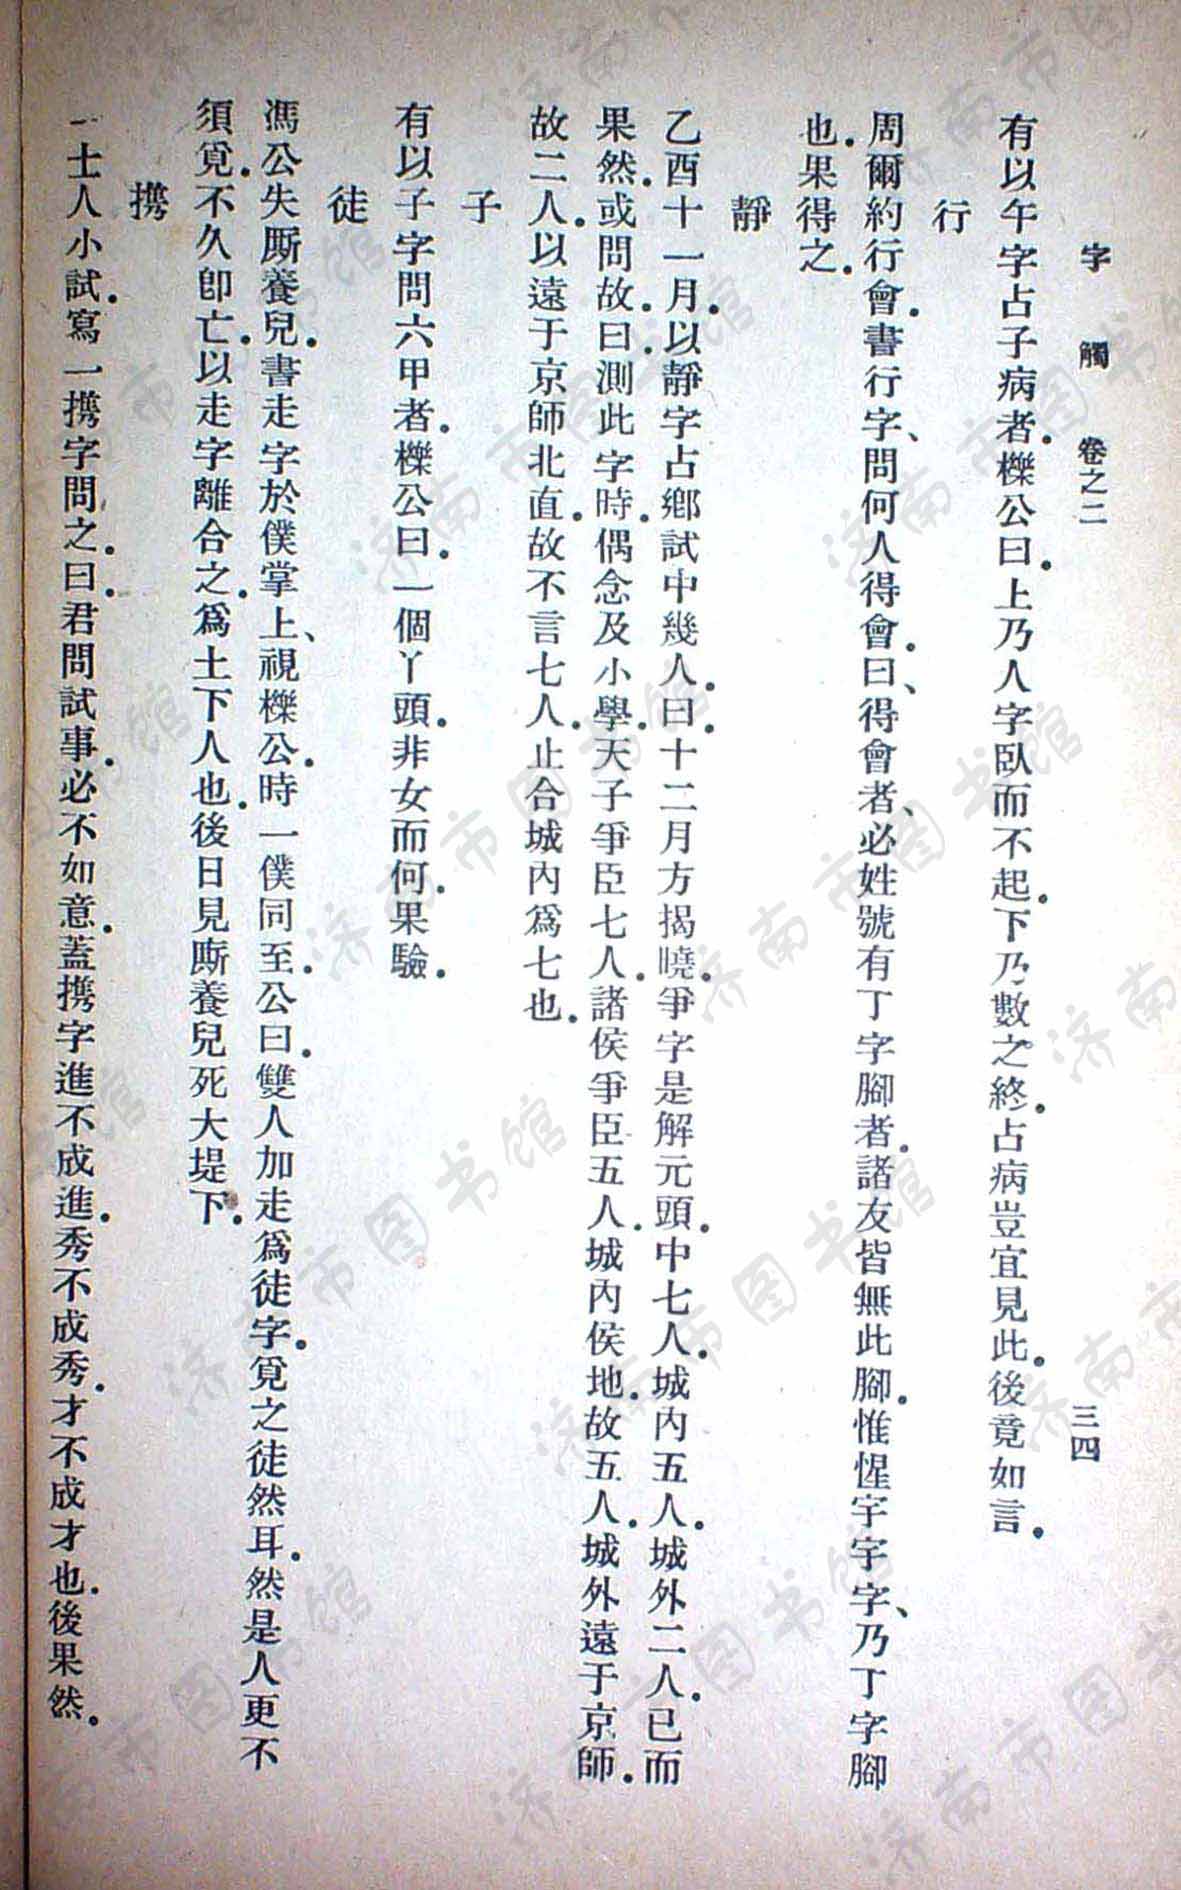 字觸　卷之二　三四
有以午字占子病者．櫟公曰．上乃人字臥而不起．下乃數之終．占病豈宜見此．後竟如言．
行
周爾約行會．書行字、問何人得會．曰、得會者、必姓號有丁字腳者．諸友皆無此腳．惟惺宇宇字、乃丁字腳
也．果得之．
靜
乙酉十一月．以靜字占鄉試中幾人．曰．十二月方揭曉．爭字是解元頭．中七人．城內五人．城外二人．已而
果然．或問故．曰．測此字時．偶念及小學．天子爭臣七人．諸侯爭臣五人．城內侯地．故五人．城外遠于京師．
故二人．以遠于京師北直．故不言七人．止合城內爲七也．
子
有以子字問六甲者．櫟公曰．一個丫頭．非女而何．果驗．
徒
馮公失厮養兒．書走字於僕掌上、視櫟公．時一僕同至．公曰．雙人加走爲徒字．覓之徒然耳．然是人更不
須覓．不久卽亡．以走字離合之．爲土下人也．後日見厮養兒死大堤下．
携
一士人小試．寫一携字問之．曰．君問試事．必不如意．蓋携字進不成進．秀不成秀．才不成才也．後果然．
济南市图书馆